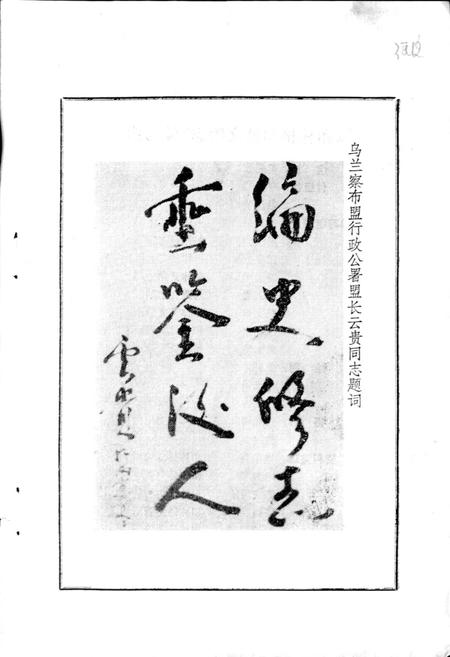 乌兰察布盟行政公署盟长云贵同志题词
编史修志
垂鉴后人